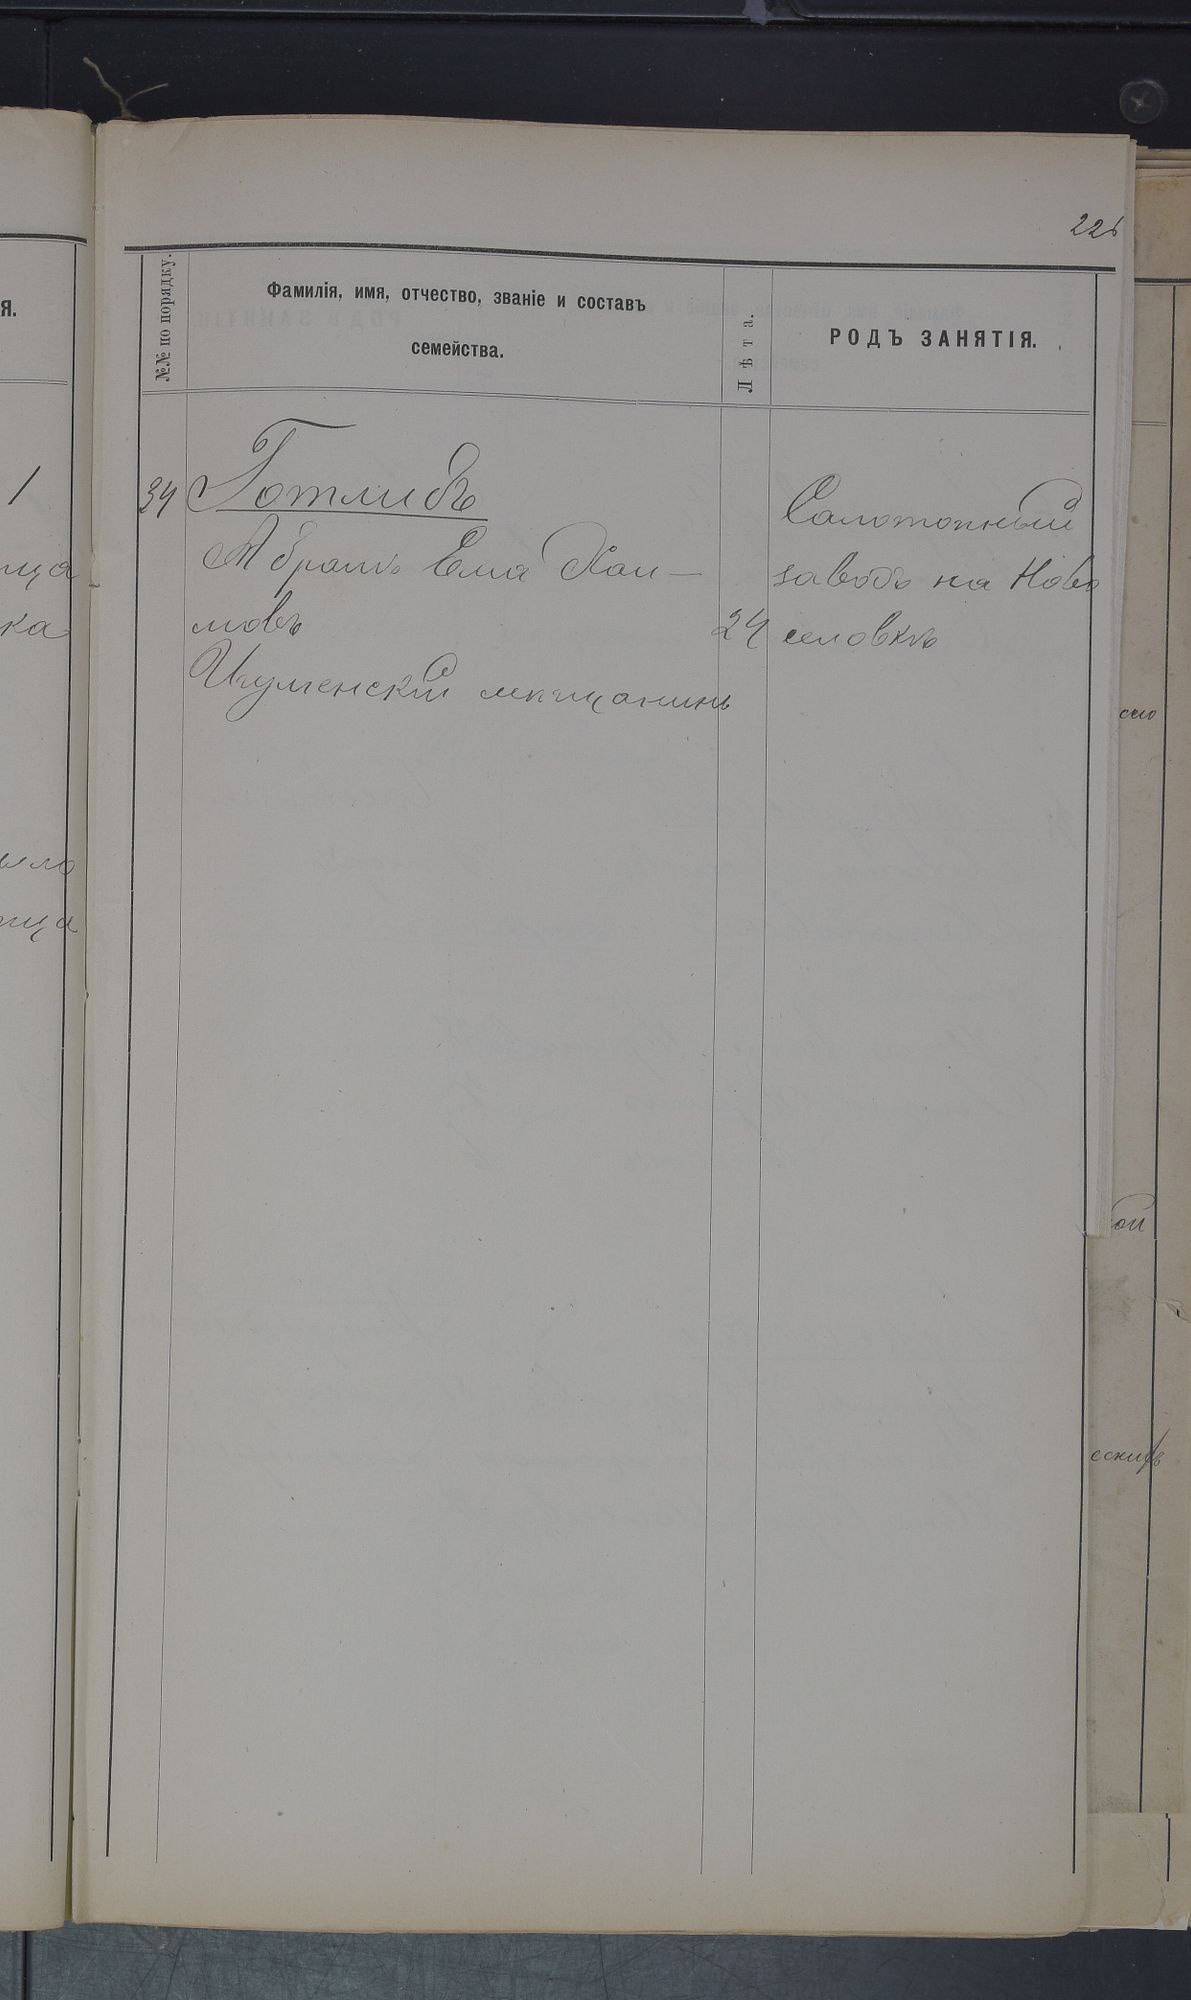 226
№№ по порядку.
Фамилія, имя, отчество, званіе и составъ
семейства.
Лѣта.
РОДЪ ЗАНЯТІЯ.
34
Готлибъ
Абрамъ Елья Хаи-
мовъ
24
Игуменскій мѣщанинъ
Салотопный
заводъ на Ново
селовкѣ
я.
1
ща
ка
ща